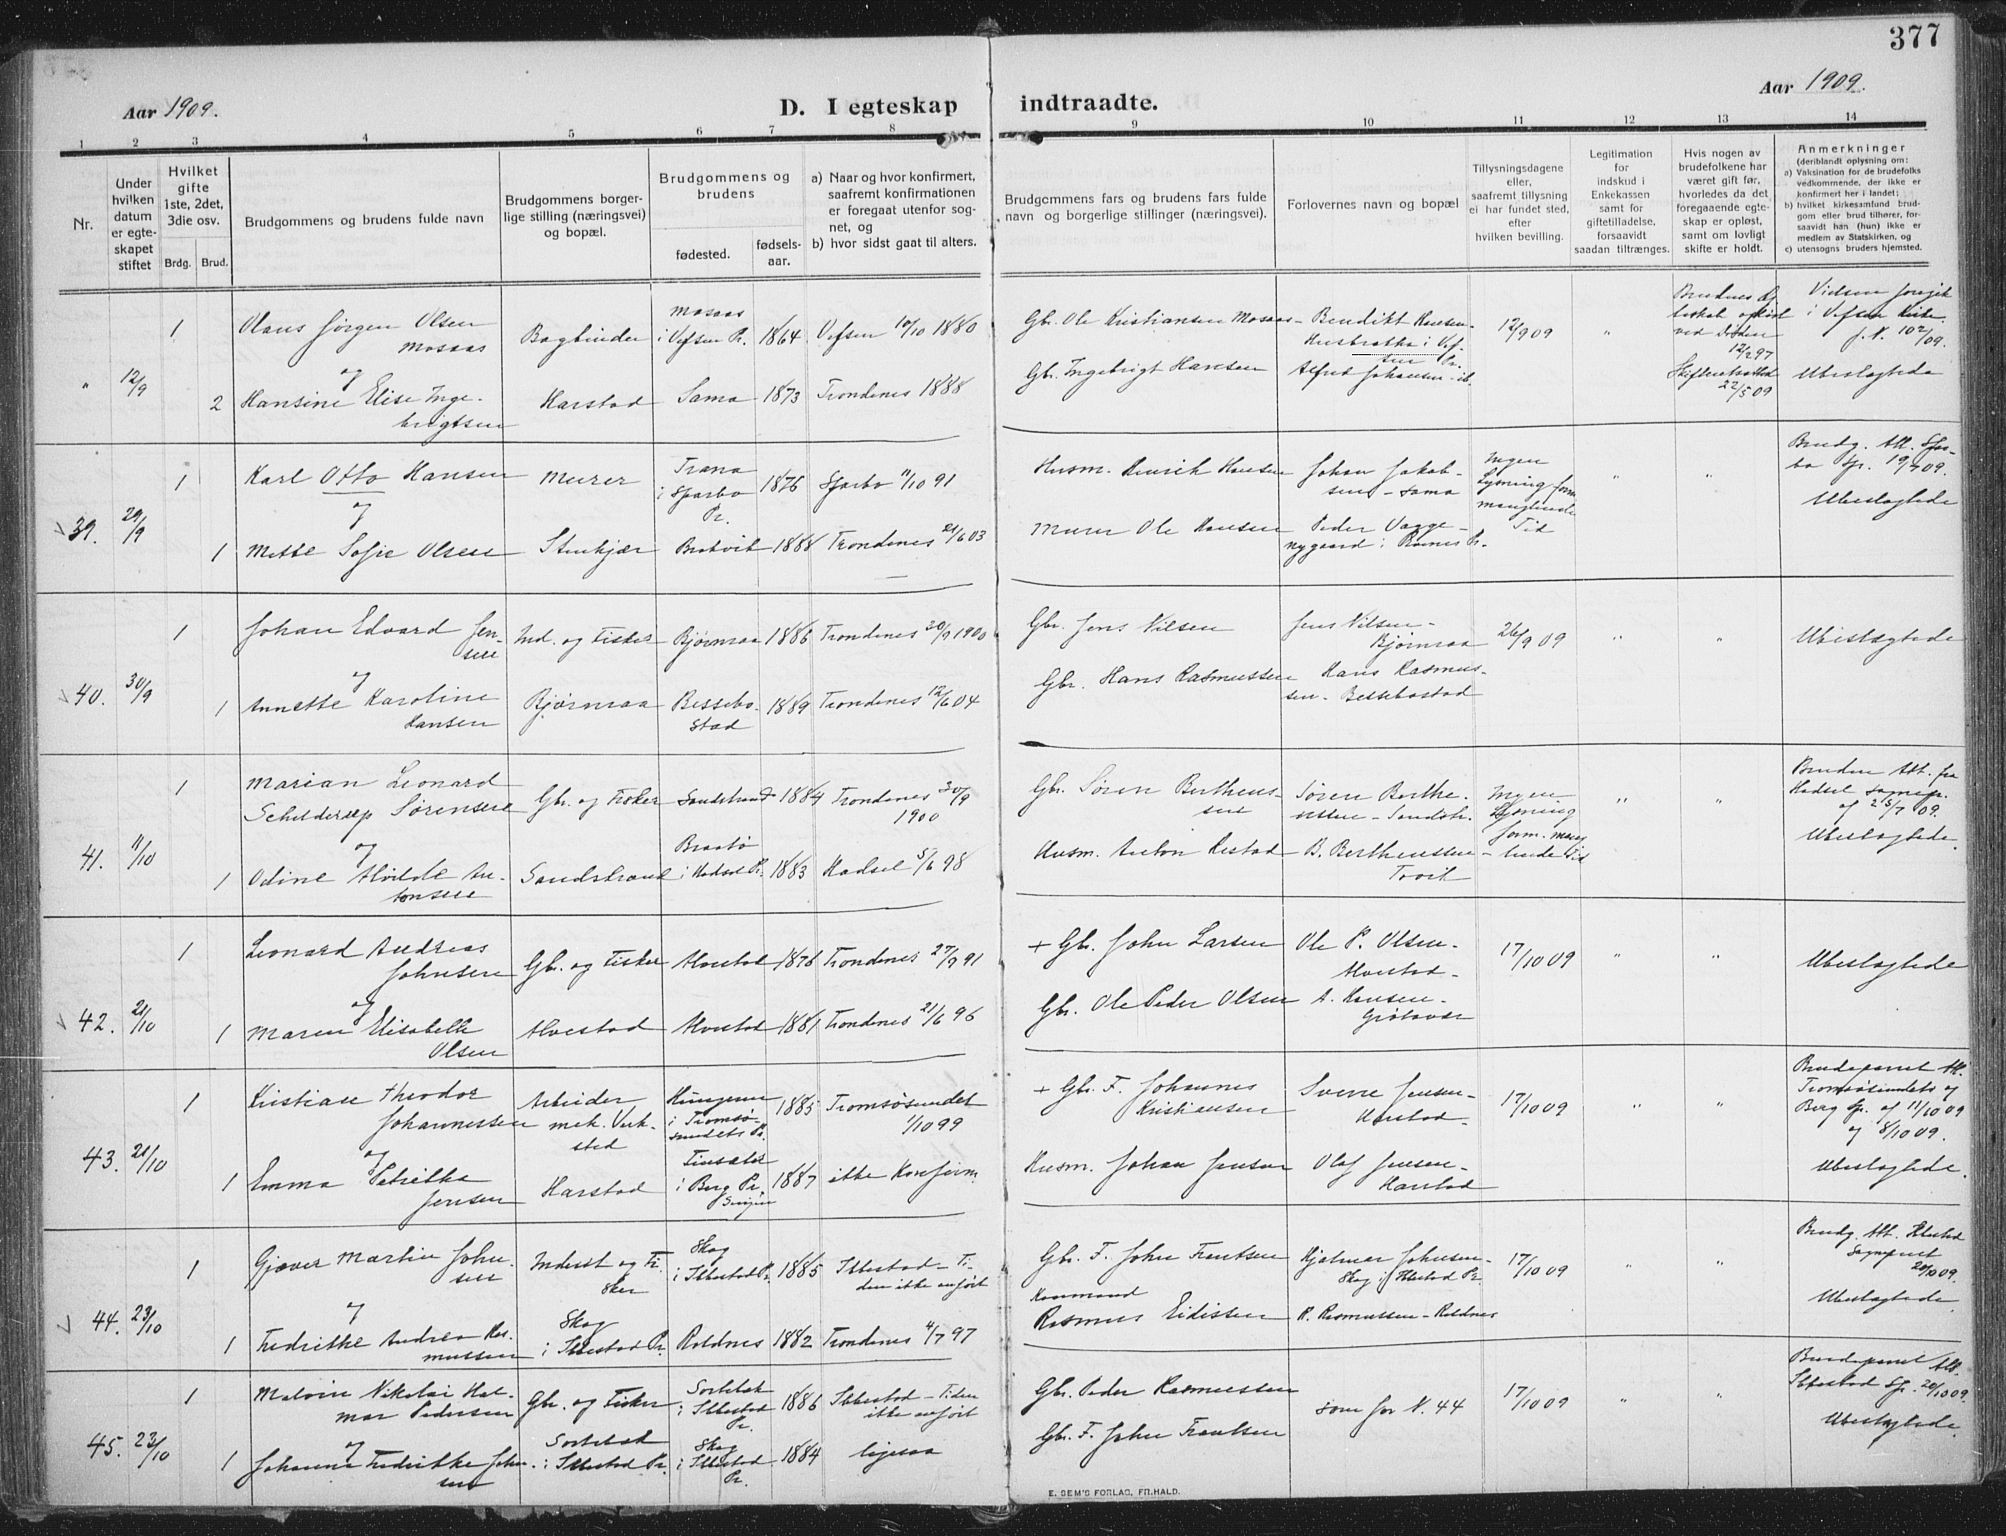 377
Aar 1909.
D. I egteskap indtraadte.
Aar 1909.
1 2 3 4 5 6 7 8 9 10 11 12 13 14
Nr.
Under
hvilken
datum
er egte-
skapet
stiftet
Hvilket
gifte
1ste, 2det,
3die osv.
Brdg. Brud.
Brudgommens og brudens fulde navn
Brudgommens borger-
lige stilling (næringsvei)
og bopæl.
Brudgommens og
brudens
fødested.
fødsels-
aar.
a) Naar og hvor konfirmert,
saafremt konfirmationen
er foregaat utenfor sog-
net, og
b) hvor sidst gaat til alters.
Brudgommens fars og brudens fars fulde
navn og borgerlige stillinger (næringsvei).
Forlovernes navn og bopæl
Tillysningsdagene
eller,
saafremt tillysning
ei har fundet sted,
efter
hvilken bevilling.
Legitimation
for
indskud i
Enkekassen
samt for
giftetilladelse,
forsaavidt
saadan tiltrænges.
Hvis nogen av
brudefolkene har
været gift før,
hvorledes da det
foregaaende egte-
skap er opløst,
samt om lovligt
skifte er holdt.
Anmerkninger
(deriblandt oplysning om:
a) Vaksination for de brudefolks
vedkommende, der ikke er
konfirmert her i landet;
b) hvilket kirkesamfund brud-
gom eller brud tilhører, for-
saavidt han (hun) ikke er
medlem av Statskirken, og
c) utensogns bruders hjemsted.
" 12/9
1
Olaus Jørgen Olsen
Mosaas
Bogbinder
Mosaas
i Vefsen Pr.
1864
Vefsen 10/10 1880
Gbr. Ole Kristiansen Mosaas
Bendikt Hansen
i Vef-
sen Pr.
12/9 09
"
ved Døden
12/2 97
22/5 09
Vielsen foregik
i Vefsen Kirke
og
2
Hansine Elise Inge-
brigtsen
Harstad
Sama
1873
Trondenes 1888
Gbr. Ingebrigt Hansen
Alfred Johansen - ib.
Ubeslægtede
39. 29/9
1
Karl Otto Hansen
Murer
Trana
i Sparbo
Pr.
1876
Sparbo 11/10 91
Husm. Henrik Hansen
Johan Jakob-
sen - Sama
Ingen
Lysning form.
manglende
Tid
"
"
Brudg. Att. Spar-
bo Sp. 19/9 09.
Ubeslægtede
og
1
Mette Sofie Olsen
Stenkjær
Brokvik
1888
Trondenes 21/6 03
Murer Ole Hansen
Peder Vagge-
nygaard i Pr.
40. 30/9
1
Johan Edvard Jen-
sen
Ind. og Fisker
Bjørnraa
1886
Trondenes 30/9 1900
Gbr. Jens Nilsen
Jens Nilsen -
Bjørnraa
26/9 09
"
"
Ubeslægtede
og
1
Annette Karoline
Hansen
Bjørnraa
Bessebo-
stad
1889
Trondenes 12/6 04
Gbr. Hans Rasmussen
Hans Rasmus-
sen - Bessebostad
41. 11/10
1
Marian Leonard
Schelderup Sørensen
Gbr. og Fisker
Sandstrand
1884
Trondenes 30/9
1900
Gbr. Søren Bertheus-
sen
Søren Berthe-
ussen - Sandstr.
Ingen
Lysning
form. mang-
lende Tid
"
"
Bruden Att. fra
Hadsel Sognepr.
af 25/7 09.
Ubeslægtede.
og
1
Odine Hilde An-
tonsen
Sandstrand
i Hadsel Pr.
1883
Hadsel 5/6 98
Husm. Anton
B. Bertheussen -
42. 21/10
1
Leonard Andreas
Johnsen
Gbr. og Fisker
Alvestad
1876
Trondenes 27/9 91
+ Gbr. John Larsen
Ole P. Olsen -
Alvestad -
17/10 09
"
"
Ubeslægtede
og
1
Maren Elisabeth
Olsen
Alvestad
Alvestad
1881
Trondenes 21/6 96
Gbr. Ole Peder Olsen
A. Hansen -
Grøtavær
43. 21/10
1
Kristian Theodor
Johannessen
Arbeider
mek. Verk-
sted
i Tromsø-
sundets Pr.
1885
Tromsøsundet
1/10 99
+ Gbr. F. Johannes
Kristiansen
Sverre Jensen -
Harstad -
17/10 09
"
"
Brudeparret Att.
Tromsøsundets og
Berg Sp. af 11/10 09
og 8/10 09.
Ubeslægtede.
og
1
Emma Petrikka
Jensen
Harstad
i Berg Pr.
Senjen
1887
ikke Konfirm.
Husm. Johan Jensen
Olaf Jensen -
Harstad
44. 23/10
1
Gjæver Martin John-
sen
Inderst og Fi-
sker
Skog
i Ibbestad Pr.
1885
Ibbestad - Ti-
den ikke anført
Gbr. F. John Frentsen
Hjalmar Johnsen -
Skog i Ibbestad Pr.
17/10 09
"
"
Brudg. Att. Ibbestad
Sognepret
20/10 09.
Ubeslægtede.
og
1
Fredrikke Andrea Ras-
mussen
Skog
i Ibbestad Pr.
Roldnes
1882
Trondenes 4/7 97
Kaarmand
Rasmus Eidissen
R. Rasmussen - Roldnes
45. 23/10
1
Malvin Nikolai Hal-
mar Pedersen
Gbr. og Fisker
i Ibbestad
Pr.
1886
Ibbestad - Tiden
ikke anført
Gbr. Peder Rasmussen
som for N. 44
17/10 09
"
"
Brudeparret Att.
Ibbestad Sp. 20/10 09.
Ubeslægtede.
og
1
Johanna Fredrikke John-
sen
i Ibbestad Pr.
Skog
i Ibbestad
Pr.
1884
ligesaa
Gbr. F. John Frentsen
E. SEM'S FORLAG, FR.HALD.